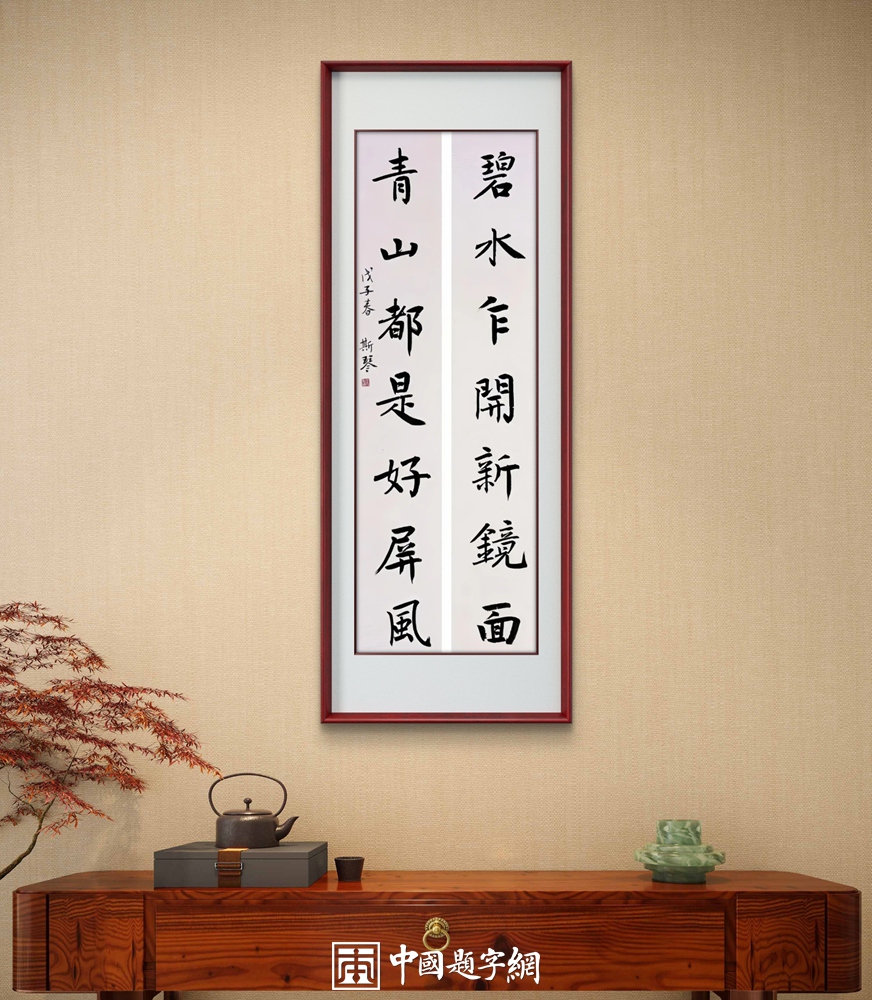 碧水乍開新鏡面
青山都是好屏風
戊子春 斯琴
中國題字網